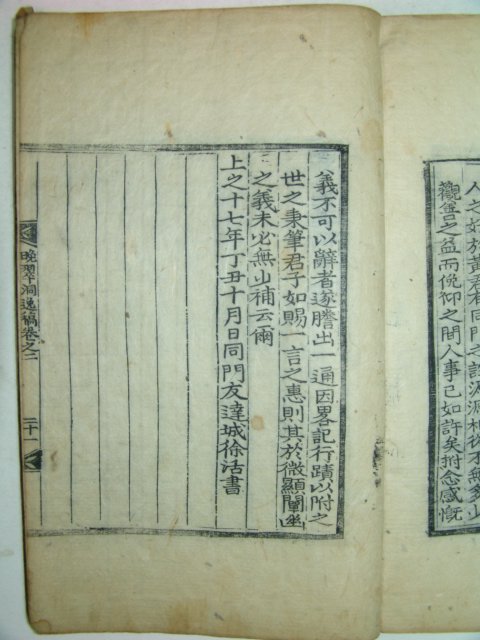 人之好於黃君有同門之誼源源相從不無多少
觀善之益而俛仰之間人事已如許矣拊念感慨
義不可以辭者遂謄出一通因畧記行蹟以附之
世之秉筆君子如賜一言之惠則其於微顯闡幽
之義未必無少補云爾
上之十七年丁丑十月日同門友達城徐活書
晩翠洞逸稿卷之二
二十一